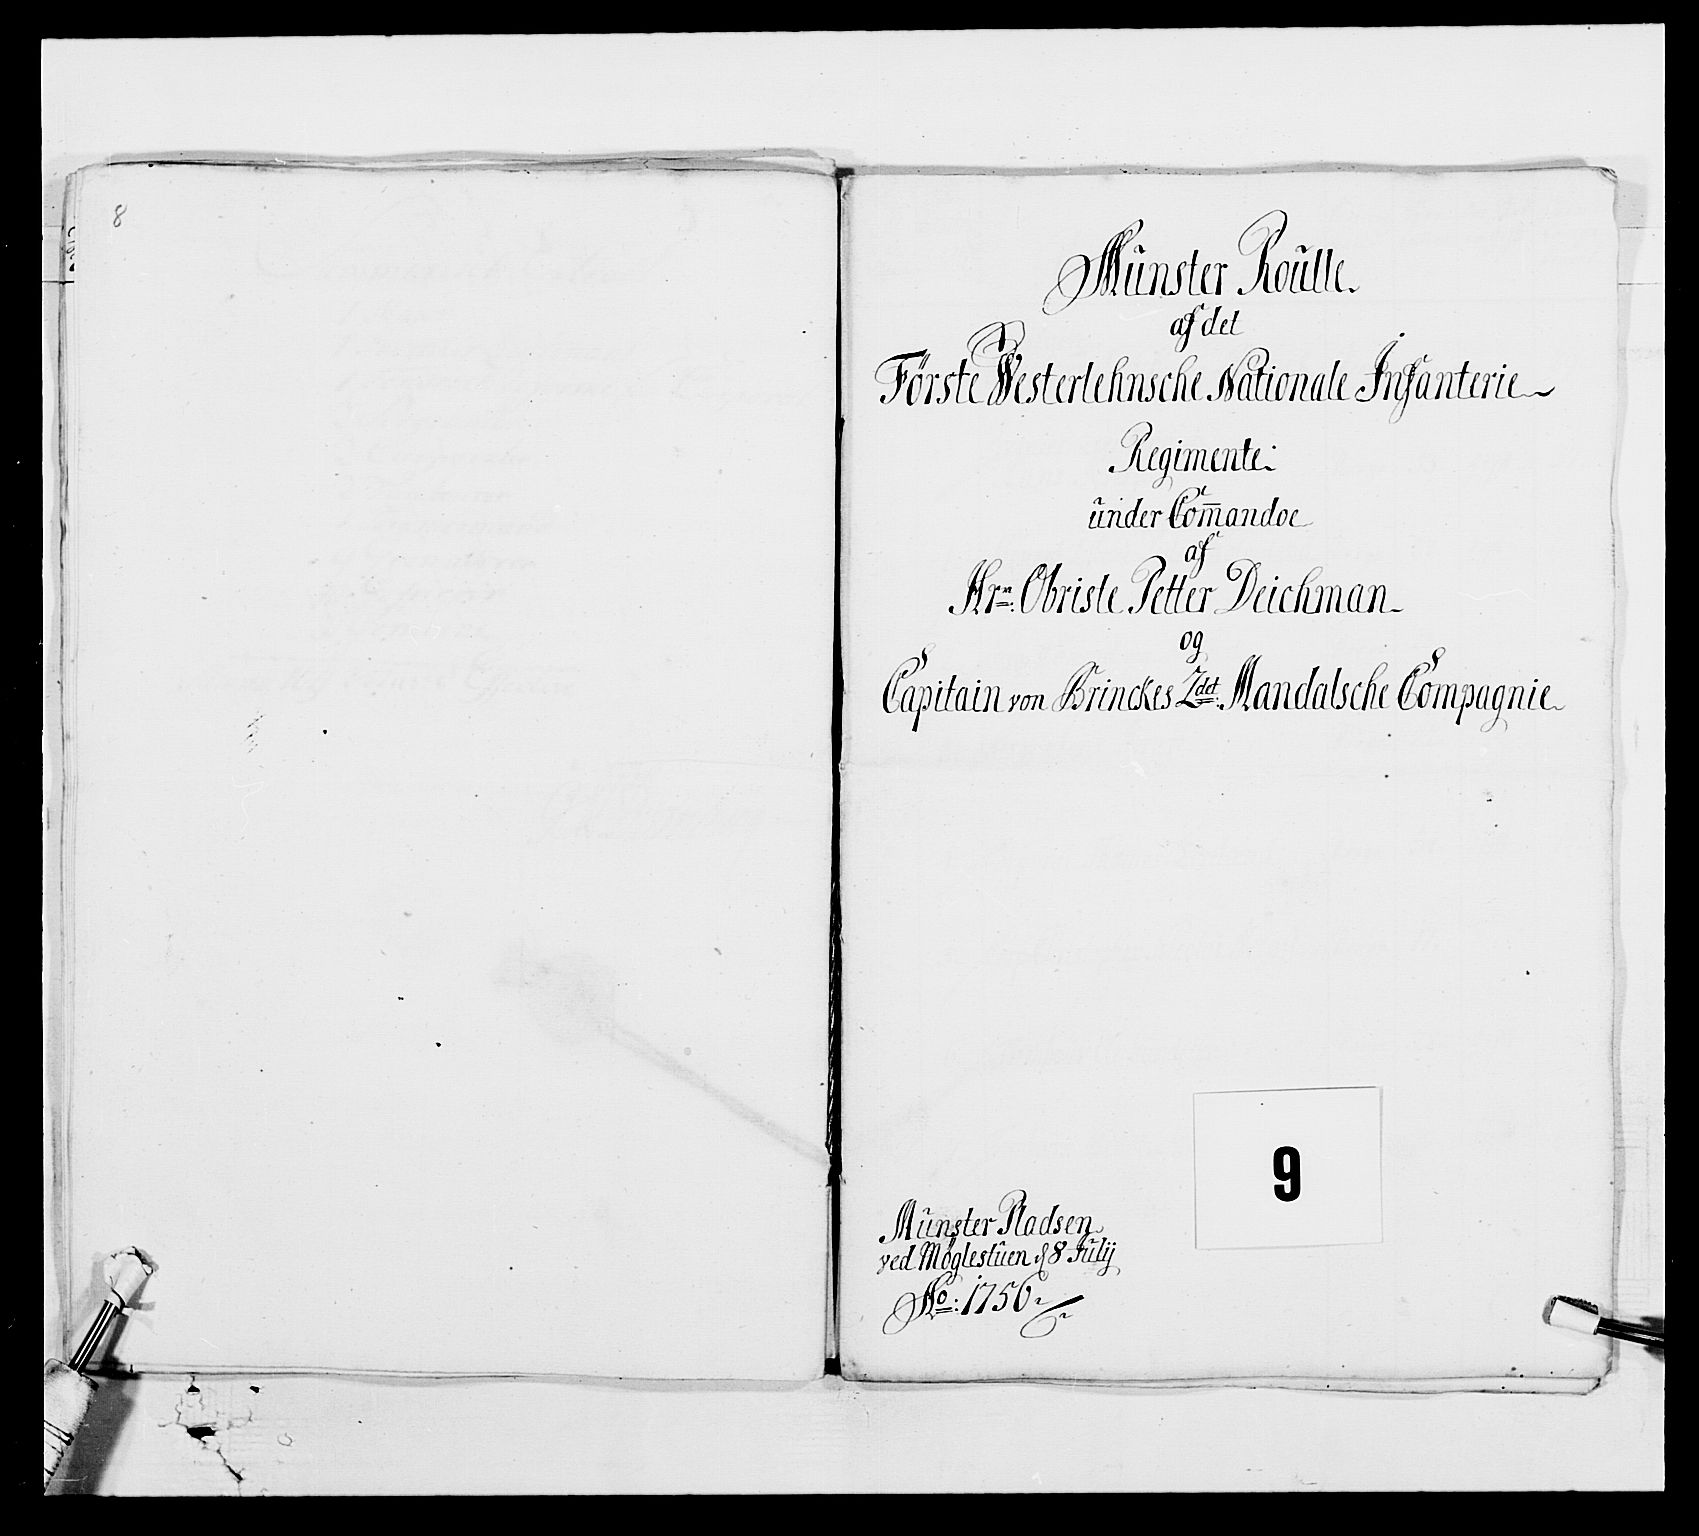 8
Münster Roülle.
af det
Förste Westerlehnsche Nationale Infanterie
Regimente:
ünder Com̄andoe
af
Hrn: Obriste Petter Deichman
og
Capitain von Brinckes 2det: Mandalsche Compagnie
9
Münster Pladsen
ved Möglestüen d 8 Jülij
Ao: 1756